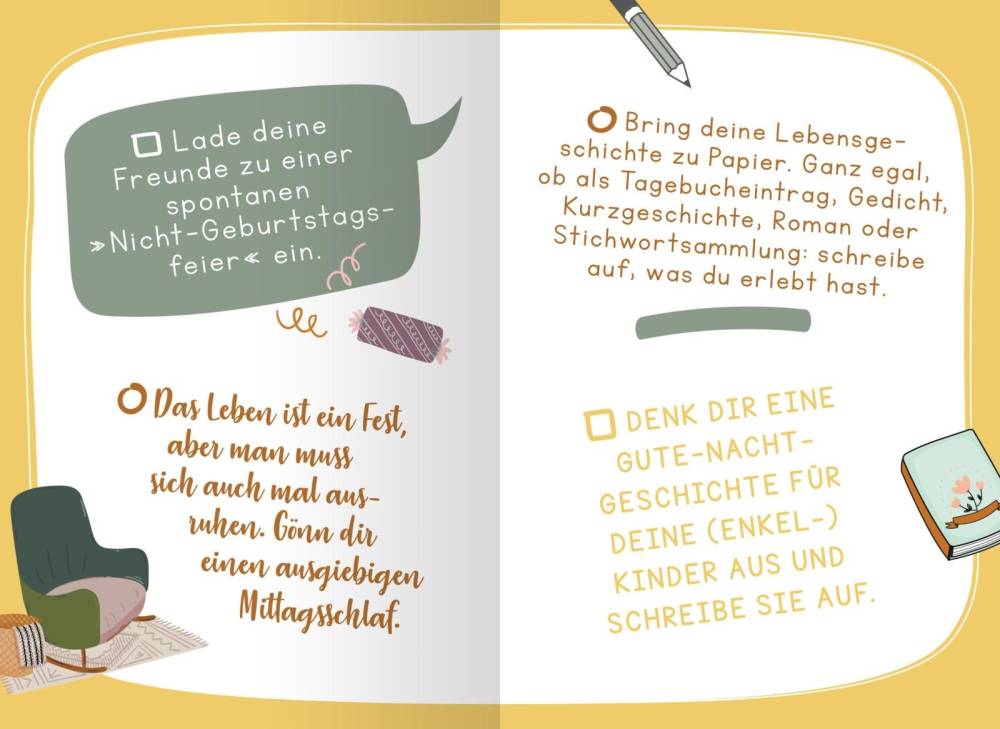 Lade deine
Freunde zu einer
spontanen
»Nicht-Geburtstags-
feier« ein.
Das Leben ist ein Fest,
aber man muss
sich auch mal aus-
ruhen. Gönn dir
einen ausgiebigen
Mittagsschlaf.
Bring deine Lebensge-
schichte zu Papier. Ganz egal,
ob als Tagebucheintrag, Gedicht,
Kurzgeschichte, Roman oder
Stichwortsammlung: schreibe
auf, was du erlebt hast.
DENK DIR EINE
GUTE-NACHT-
GESCHICHTE FÜR
DEINE (ENKEL-)
KINDER AUS UND
SCHREIBE SIE AUF.